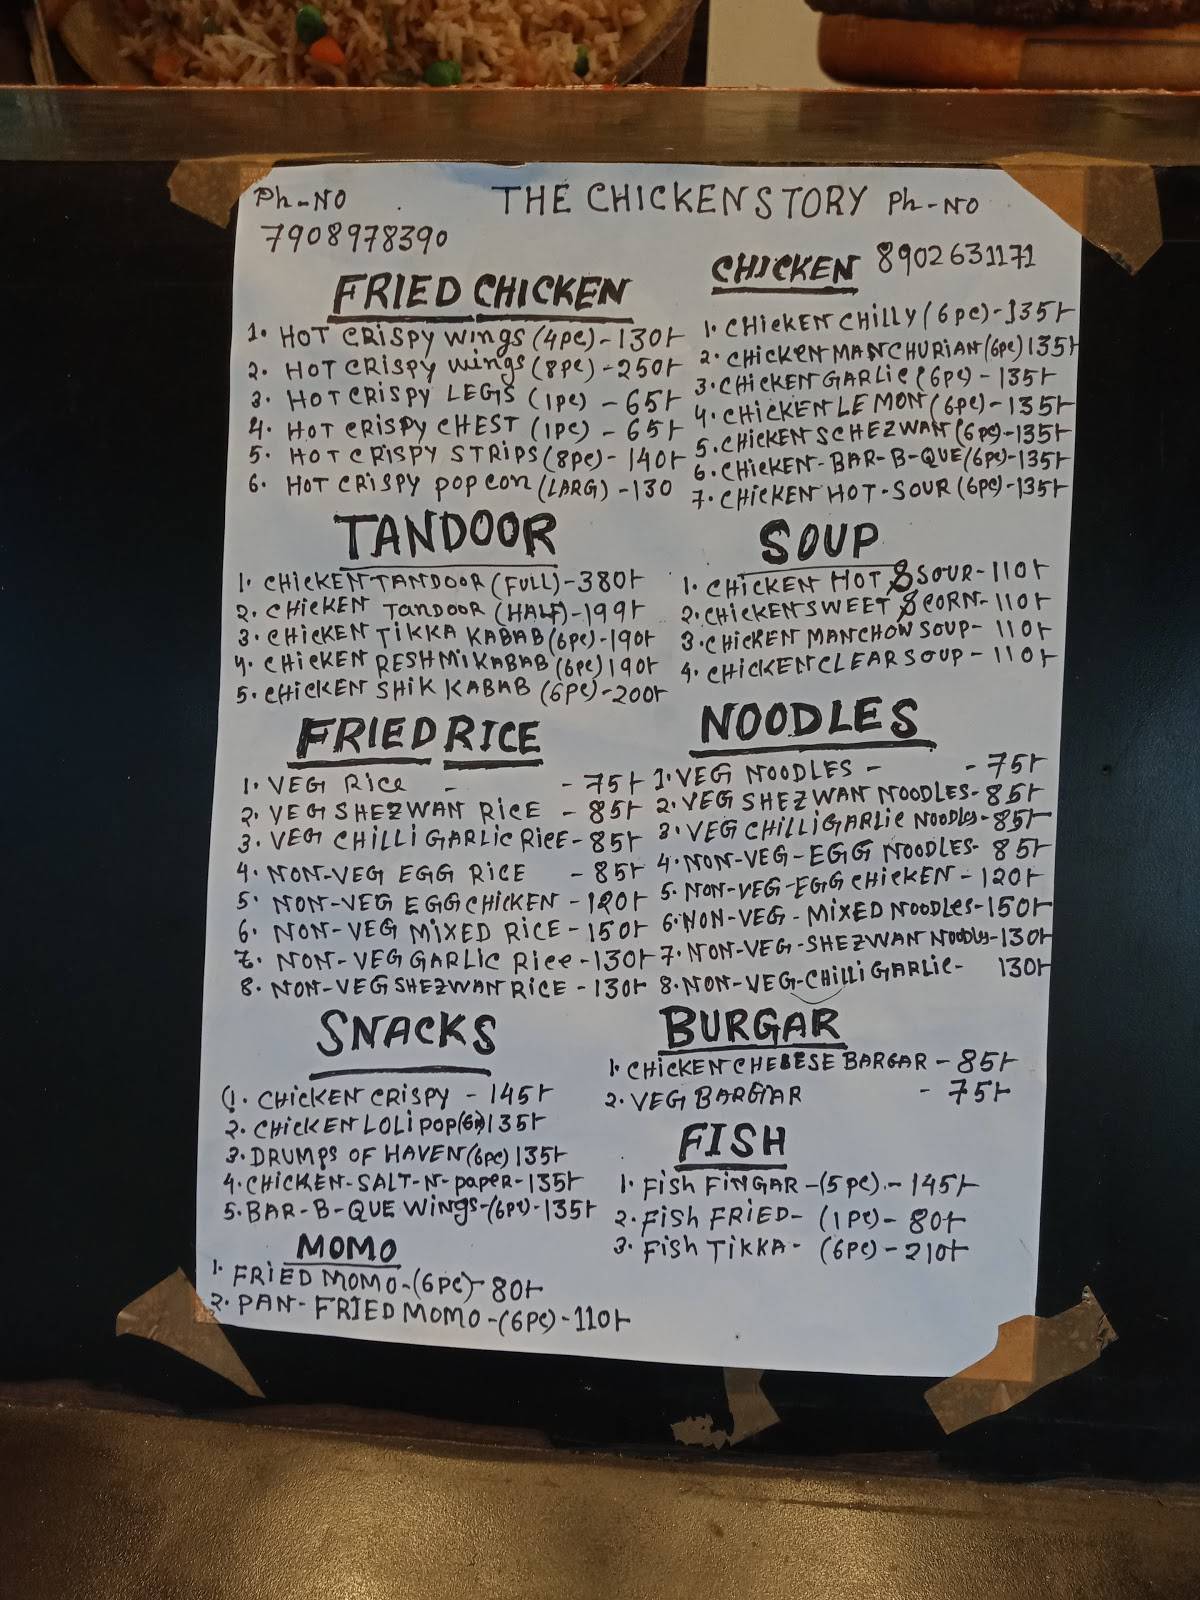 Ph-NO THE CHICKEN STORY Ph-NO
7908978390 8902631171
FRIED CHICKEN
1. HOT CRISPY wings (4PC)-130/-
2. HOT CRISPY wings (8PC)-250/-
3. HOT CRISPY LEGS (1PC) - 65/-
4. HOT CRISPY CHEST (1PC) - 65/-
5. HOT CRISPY STRIPS (8PC)- 140/-
6. HOT CRISPY POP CON (LARG) -130
CHICKEN
1. CHICKEN CHILLY (6PC)-135/-
2. CHICKEN MANCHURIAN (6PC) 135/-
3. CHICKEN GARLIC (6PC) - 135/-
4. CHICKEN LEMON (6PC)-135/-
5. CHICKEN SCHEZWAN (6PC)-135/-
6. CHICKEN-BAR-B-QUE (6PC)-135/-
7. CHICKEN HOT-SOUR (6PC)-135/-
TANDOOR
1. CHICKEN TANDOOR (FULL)-380/-
2. CHICKEN TANDOOR (HALF)-199/-
3. CHICKEN TIKKA KABAB (6PC)-190/-
4. CHICKEN RESHMI KABAB (6PC) 190/-
5. CHICKEN SHIK KABAB (6PC)-200/-
SOUP
1. CHICKEN HOT & SOUR-110/-
2. CHICKEN SWEET & CORN-110/-
3. CHICKEN MANCHOW SOUP- 110/-
4. CHICKEN CLEAR SOUP - 110/-
FRIED RICE
1. VEG RICE - - 75/-
2. VEG SHEZWAN RICE - 85/-
3. VEG CHILLI GARLIC RICE-85/-
4. NON-VEG EGG RICE - 85/-
5. NON-VEG EGG CHICKEN -120/-
6. NON-VEG MIXED RICE - 150/-
7. NON-VEG GARLIC RICE -130/-
8. NON-VEG SHEZWAN RICE - 130/-
NOODLES
1. VEG NOODLES - - 75/-
2. VEG SHEZWAN NOODLES-85/-
3. VEG CHILLI GARLIC NOODLES-85/-
4. NON-VEG-EGG NOODLES- 85/-
5. NON-VEG-EGG CHICKEN - 120/-
6. NON-VEG-MIXED NOODLES-150/-
7. NON-VEG-SHEZWAN Noodls-130/-
8. NON-VEG-CHILLI GARLIC- 130/-
SNACKS
1. CHICKEN CRISPY - 145/-
2. CHICKEN LOLIPOP 135/-
3. DRUMPS OF HAVEN (6PC) 135/-
4. CHICKEN-SALT-N-PAPER-135/-
5. BAR-B-QUE Wings-(6PC)-135/-
BURGAR
1. CHICKEN CHEESE BARGAR - 85/-
2. VEG BARGAR - 75/-
FISH
1. FISH FINGAR -(5PC).- 145/-
2. FISH FRIED- (1PC)- 80/-
3. FISH TIKKA - (6PC) - 210/-
MOMO
1. FRIED MOMO-(6PC)- 80/-
2. PAN-FRIED MOMO-(6PC)-110/-